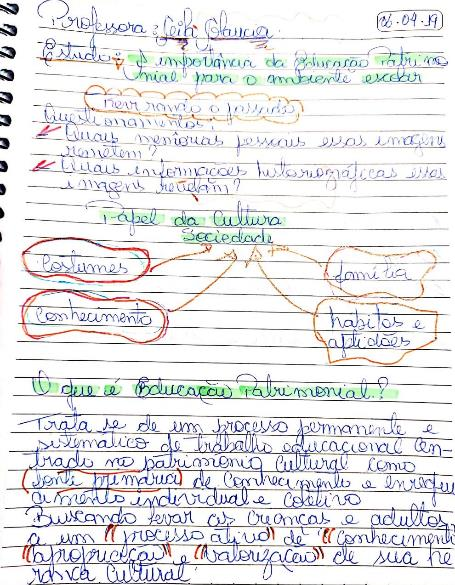 Professora: Leila
26.04.19
Estudo: A importância da Educação Patrimo
nial para o ambiente escolar
o passado
Questionamentos:
Quais memórias pessoais essas imagens
remetem?
Quais informações historiográficas essas
imagens revelam?
Papel da Cultura
Sociedade
Costumes
família
Conhecimento
habitos e
aptidões
O que é Educação Patrimonial?
Trata se de um processo permanente e
sistemático de trabalho educacional cen-
trado no patrimonio cultural como
fonte primária de conhecimento e enrique
cimento individual e coletivo
Buscando levar as crianças e adultos
a um "processo ativo" de "conhecimento
"apropriação" e "valorização" de sua he
rança cultural.